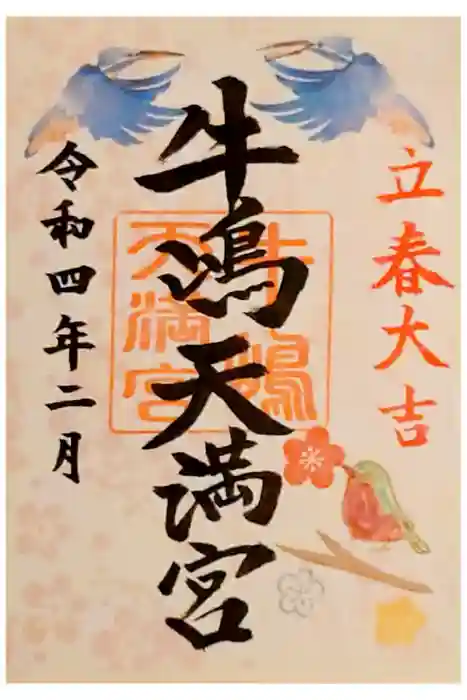 立春大吉
牛嶋天満宮
牛嶋
天満宮
令和四年二月